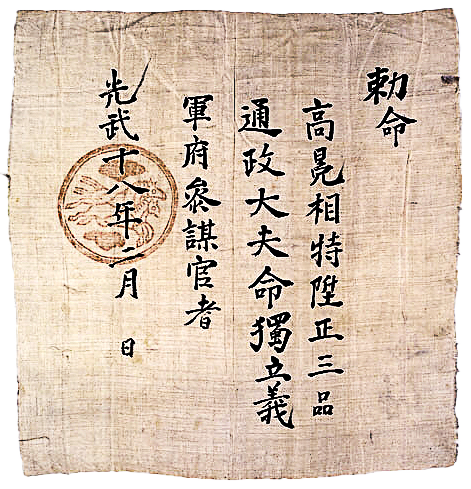 勅命
高晃相特陞正三品
通政大夫命獨立義
軍府參謀官者
光武十八年二月　日